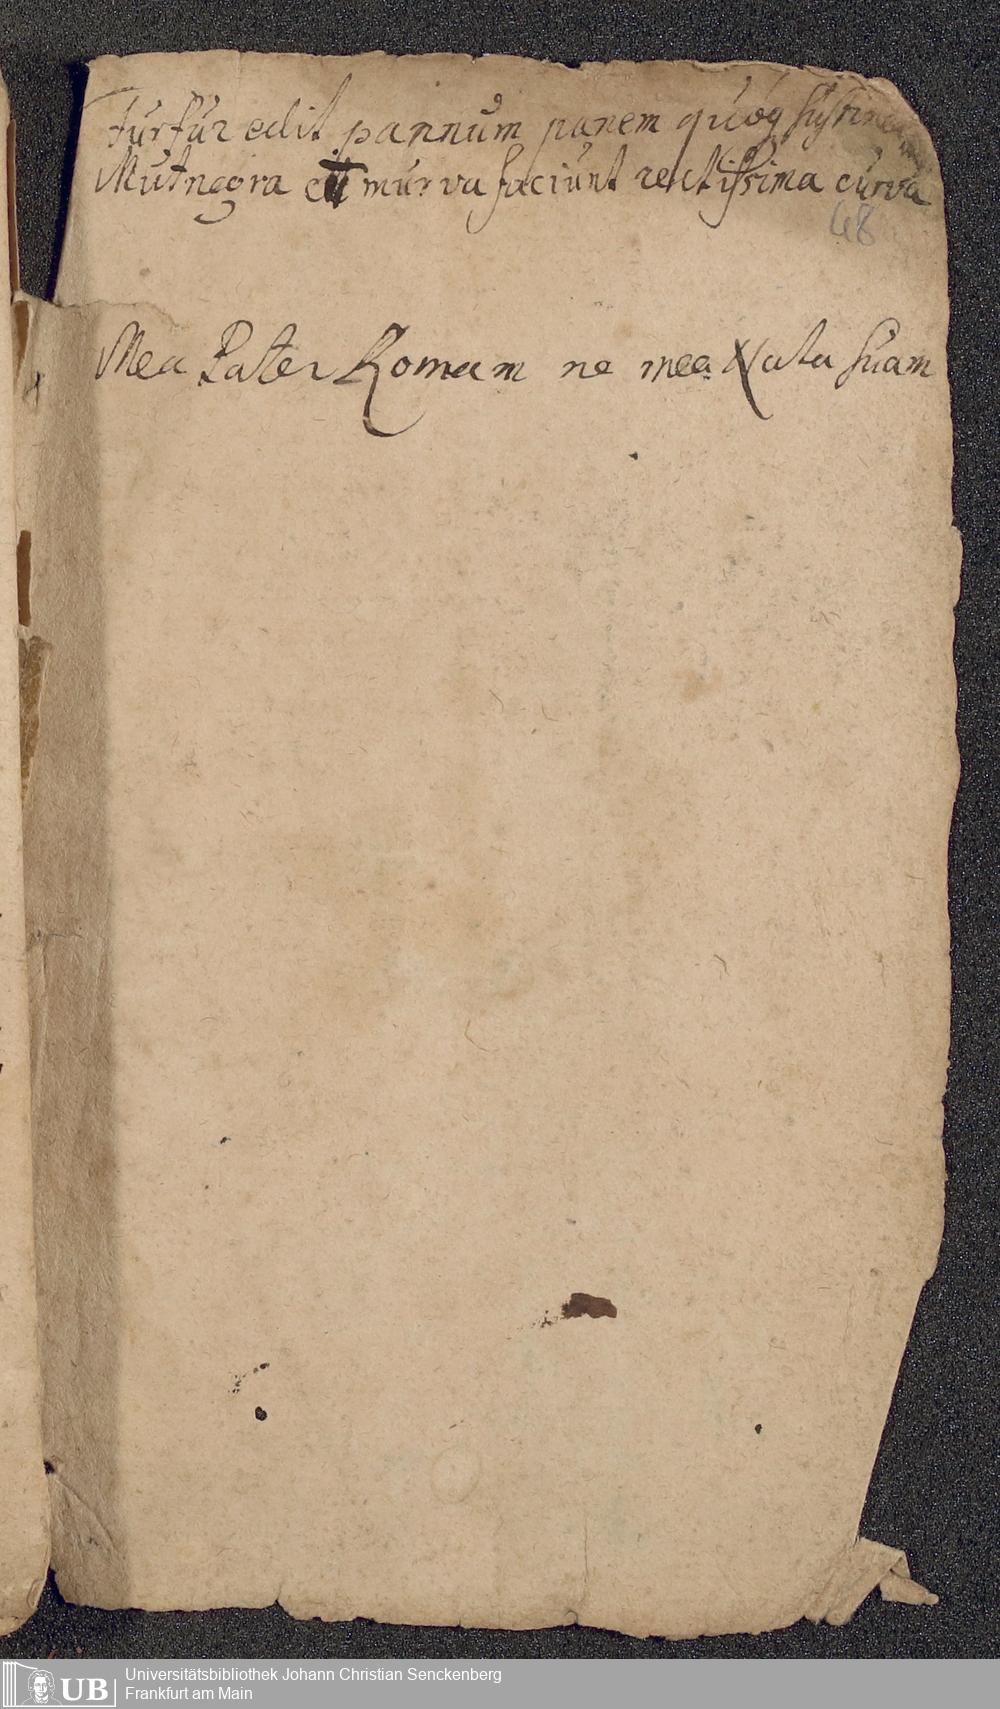 furfur edit pannum panem quoq
Mutnegra et murva faciunt rectissima curva
48
Mea Pater Romam ne mea Nata suam
Universitätsbibliothek Johann Christian Senckenberg
Frankfurt am Main
UB